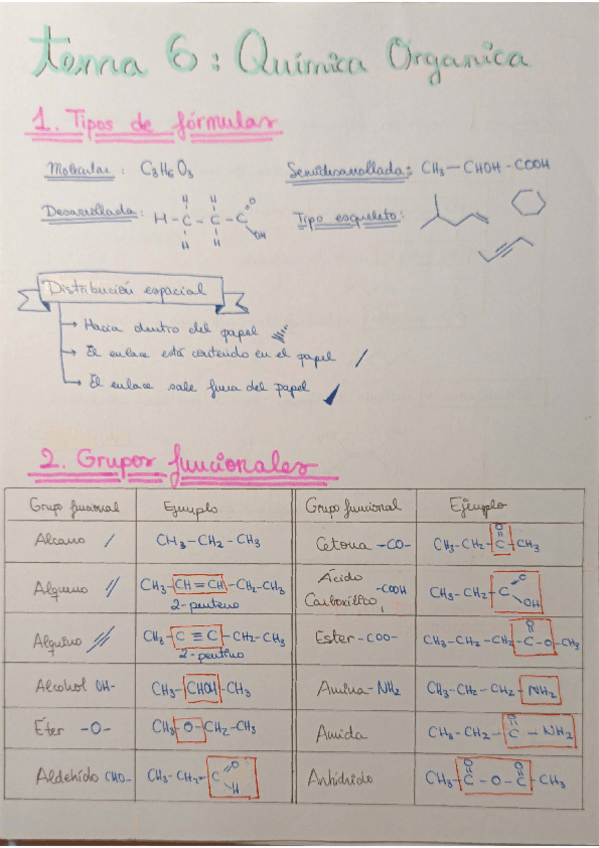 tema 6: Química Organica
1. Tipos de fórmulas
Molecular: C₃H₆O₃
Semidesarrollada: CH₃—CHOH-COOH
Desarrollada: H-C-C-C
H H O
H H OH
Tipo esqueleto:
Distribución espacial
→ Hacia dentro del papel
→ El enlace está contenido en el papel
→ El enlace sale fuera del papel
2. Grupos funcionales
Grupo funcional Ejemplo Grupo funcional Ejemplo
Alcano CH₃-CH₂-CH₃ Cetona -CO- CH₃-CH₂-C(=O)-CH₃
Alqueno CH₃-CH=CH-CH₂-CH₃ Ácido
2-penteno Carboxílico -COOH CH₃-CH₂-C(=O)OH
Alquino CH₃-C≡C-CH₂-CH₃ Ester -COO- CH₃-CH₂-CH₂-C(=O)-O-CH₃
2-pentino
Alcohol OH- CH₃-CHOH-CH₃ Amina -NH₂ CH₃-CH₂-CH₂-NH₂
Éter -O- CH₃-O-CH₂-CH₃ Amida CH₃-CH₂-C(=O)-NH₂
Aldehído CHO- CH₃-CH₂-C(=O)H Anhidrido CH₃-C(=O)-O-C(=O)-CH₃